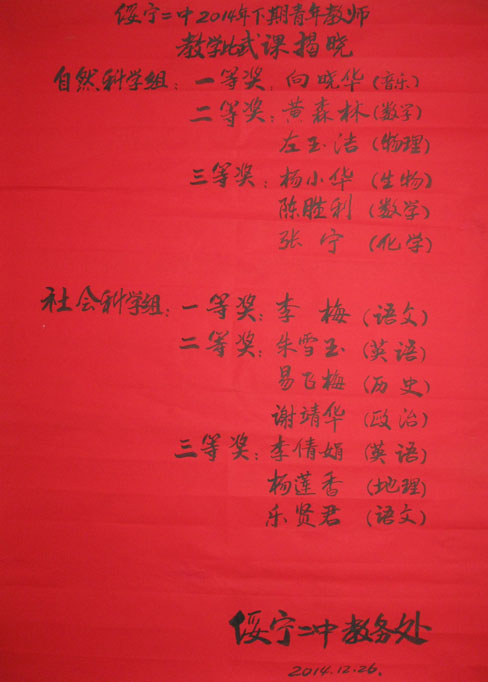 绥宁二中2014年下期青年教师
教学比武课揭晓
自然科学组：一等奖：向晓华（音乐）
二等奖：黄森林（数学）
左玉洁（物理）
三等奖：杨小华（生物）
陈胜利（数学）
张宁（化学）
社会科学组：一等奖：李梅（语文）
二等奖：朱雪玉（英语）
易飞梅（历史）
谢靖华（政治）
三等奖：李倩娟（英语）
杨莲香（地理）
乐贤君（语文）
绥宁二中教务处
2014.12.26.